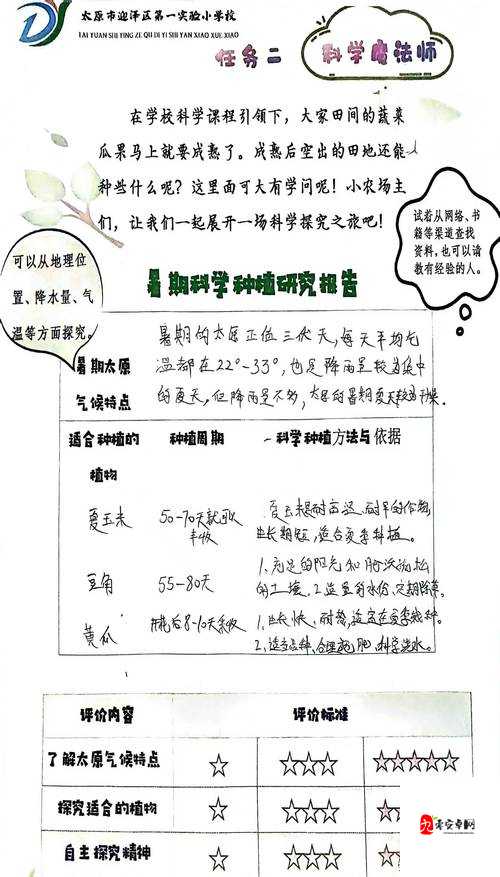 太原市迎泽区第一实验小学校
TAI YUAN SHI YING ZE QU DI YI SHI YAN XIAO XUE XIAO
任务二
科学魔法师
在学校科学课程引领下，大家田间的蔬菜
瓜果马上就要成熟了。成熟后空出的田地还能
种些什么呢？这里面可大有学问呢！小农场主
们，让我们一起展开一场科学探究之旅吧！
试着从网络、书
籍等渠道查找
资料，也可以请
教有经验的人。
可以从地理位
置、降水量、气
温等方面探究。
暑期科学种植研究报告
暑期太原
气候特点
暑期的太原正值三伏天，每天平均气
温都在22°-33°，也是降雨量较为集中
的夏天，但降雨量不多，太原的暑期夏天较为干燥。
适合种植的
植物
种植周期
科学种植方法与依据
夏玉米
50-70天就可以
丰收
夏玉米是耐高温、耐旱的作物，
生长期短，适合夏季种植。
豆角
55-80天
1、充足的阳光和肥沃疏松
的土壤。2、适量的水份，定期除草。
黄瓜
开花后8-10天采收
1、生长快、耐热，适宜在夏季栽种。
2、适当品种、合理施肥、科学浇水。
评价内容
评价标准
了解太原气候特点
☆
☆☆☆
☆☆☆☆☆
探究适合的植物
☆
☆☆☆
☆
自主探究精神
☆
☆☆☆
☆
零安卓网